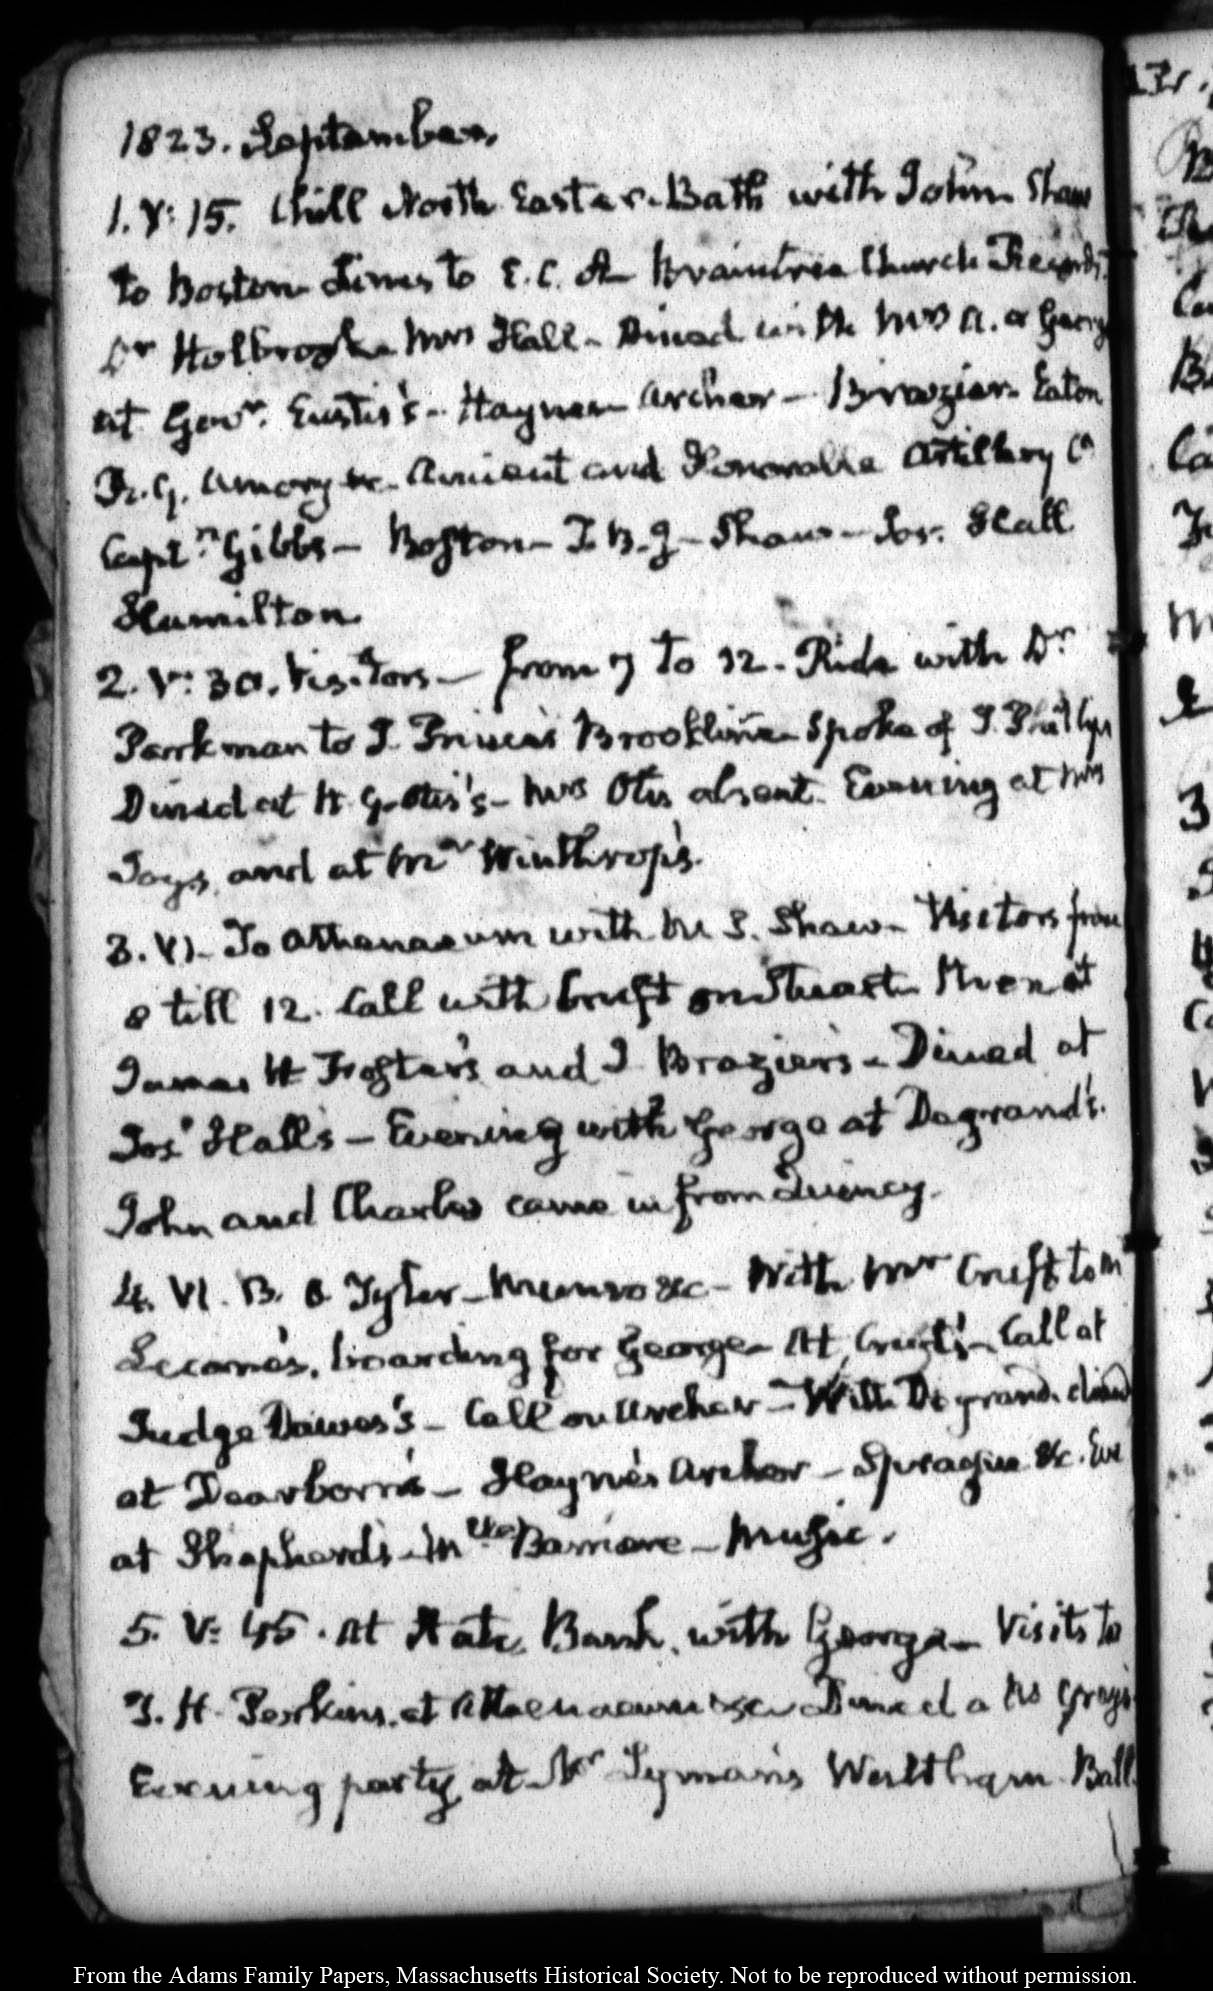 1823. September.
1. V: 15. Chill North Easter. Bath with John Shaw
to Boston Lines to E. C. A Braintree Church Records.
Dr Holbrook Mrs Hall - Dined with Mrs A. & George
at Govr. Eustis's - Hayne Archer - Brazier. Eaton
Amory &c - Ancient and Honorable Artillery Co
Captn Gibbs - Boston - Shaw - Jos. Hall
Hamilton.
2. V: 30. Visitors - from 7 to 12. Ride with Dr
Parkman to Brookline Spoke of J. Phillips
Dined at H. G. Otis's - Mrs Otis absent. Evening at Mrs
and at Mr Winthrop's.
3. VI. To Athenaeum with W S. Shaw - Visitors from
8 till 12. Call with Cruft on Stuart then at
James H Foster's and J Brazier's - Dined at
Jos. Hall's - Evening with George at Degrand's.
John and Charles came in from Quincy.
4. VI. B. O Tyler - Munro &c - With Mr Cruft to M
boarding for George - At Cruft's - Call at
Judge Dawes's - Call on Archer - With Degrand. dined
at Dearborn's - Hayne Archer - Sprague &c. Eve
at Shepherd's - Music.
5. V: 45. At State Bank, with George - Visits to
T. H. Perkins. at Athenaeum &c Dined a Gray's
Evening party at Mr Lyman's Waltham. Ball.
From the Adams Family Papers, Massachusetts Historical Society. Not to be reproduced without permission.